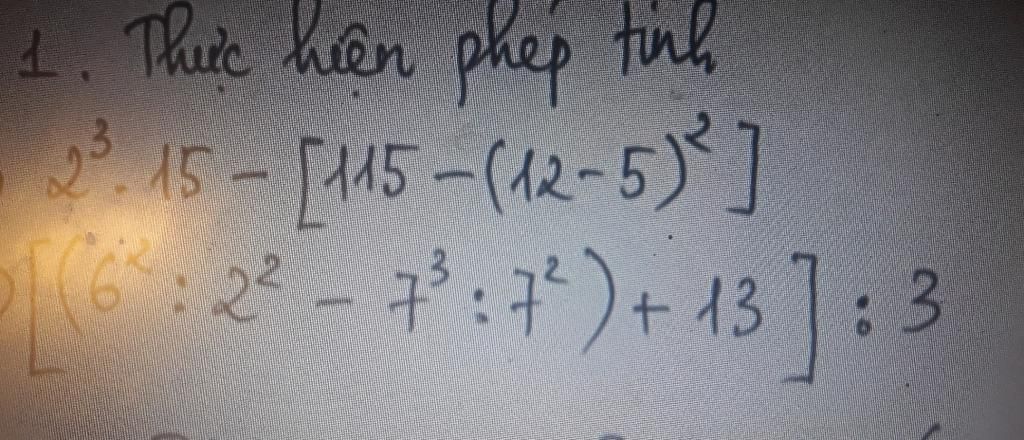 1. Thực hiện phép tính
2³ . 15 - [115 - (12 - 5)²]
[(6² : 2² - 7³ : 7²) + 13] : 3